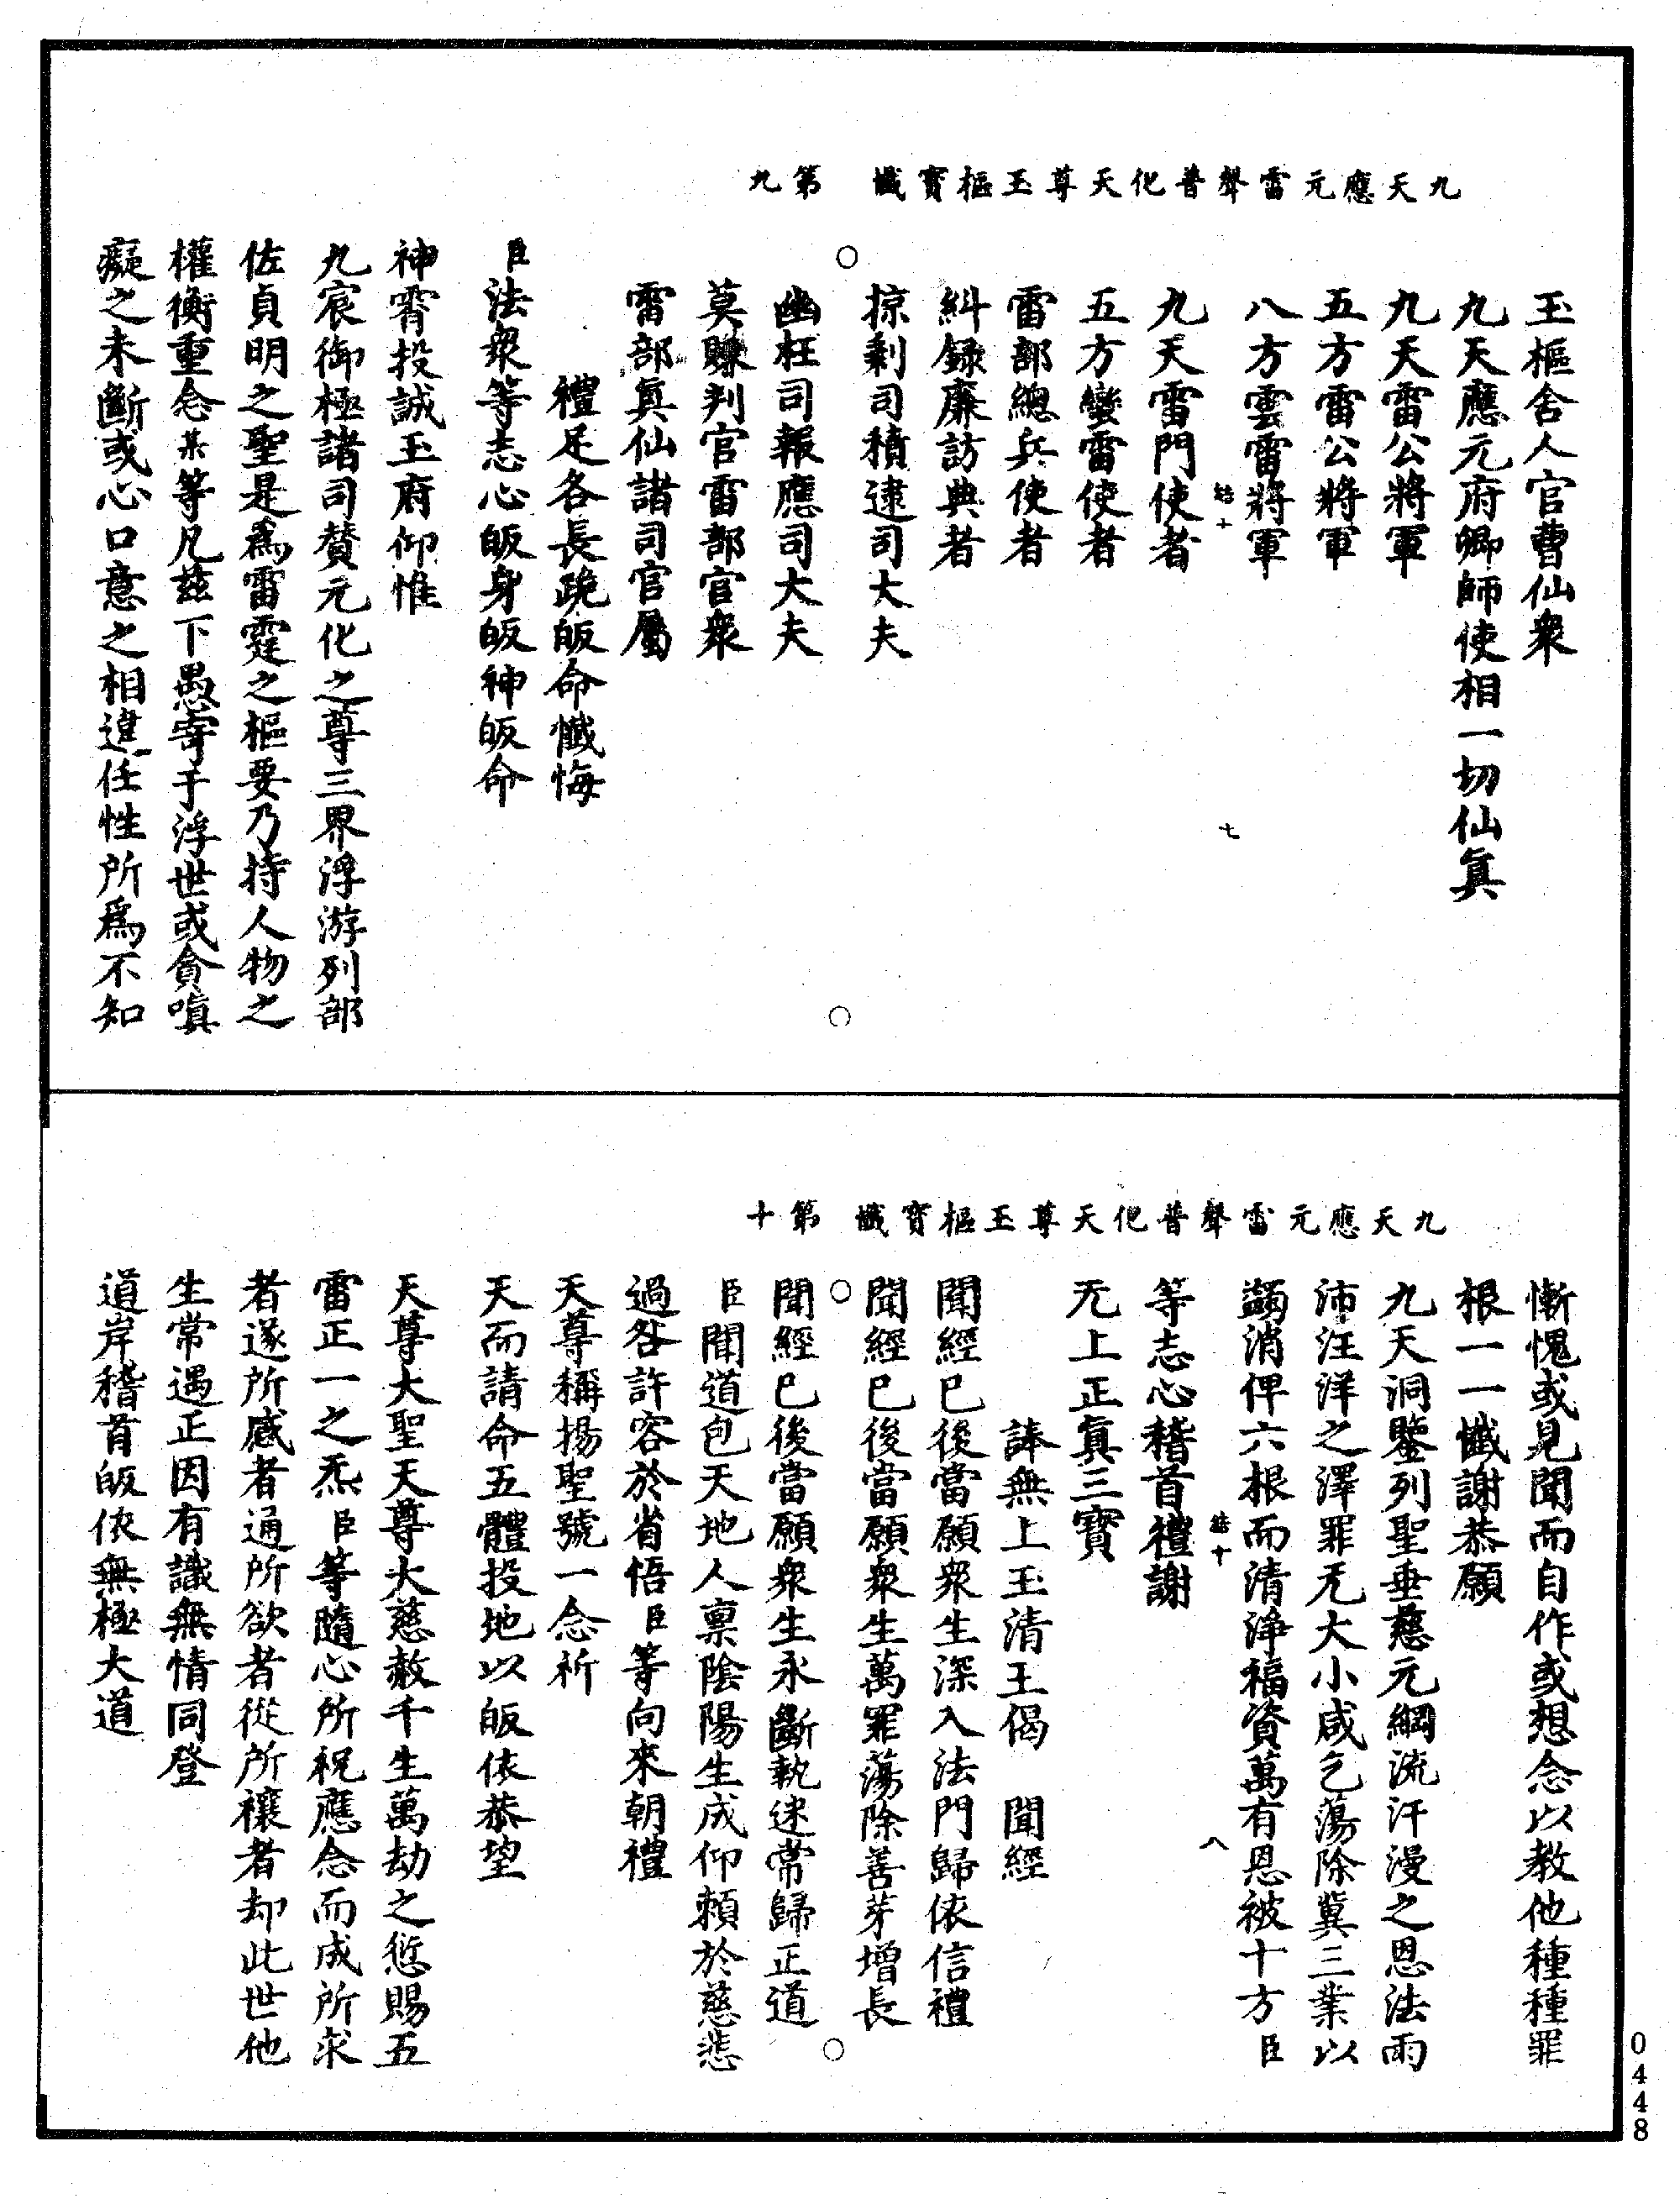 九天應元雷聲普化天尊玉樞寶懺　第九
玉樞舍人官曹仙衆
九天應元府卿師使相一切仙眞
九天雷公將軍
五方雷公將軍
八方雲雷將軍
結十　七
九天雷門使者
五方蠻雷使者
雷部總兵使者
糾録廉訪典者
掠剩司積逮司大夫
幽枉司報應司大夫
莫賺判官雷部官衆
雷部眞仙諸司官屬
禮足各長跪皈命懺悔
臣法衆等志心皈身皈神皈命
神霄投誠玉府仰惟
九宸御極諸司賛元化之尊三界浮游列部
佐貞明之聖是爲雷霆之樞要乃持人物之
權衡重念某等凡兹下愚寄于浮世或貪嗔
癡之未斷或心口意之相違任性所爲不知
九天應元雷聲普化天尊玉樞寶懺　第十
慚愧或見聞而自作或想念以教他種種罪
根一一懺謝恭願
九天洞鑒列聖垂慈元綱流汗漫之恩法雨
沛汪洋之澤罪无大小咸乞蕩除冀三業以
蠲消俾六根而清淨福資萬有恩被十方臣
結十　八
等志心稽首禮謝
无上正眞三寳
誦無上玉清王偈　聞經
聞經已後當願衆生深入法門歸依信禮
聞經已後當願衆生萬罪蕩除善芽增長
聞經已後當願衆生永斷執迷常歸正道
臣聞道包天地人禀陰陽生成仰頼於慈悲
過咎許容於省悟臣等向來朝禮
天尊稱揚聖號一念祈
天而請命五體投地以皈依恭望
天尊大聖天尊大慈赦千生萬劫之愆賜五
雷正一之炁臣等隨心所祝應念而成所求
者遂所感者通所欲者從所禳者却此世他
生常遇正因有識無情同登
道岸稽首皈依無極大道
0448